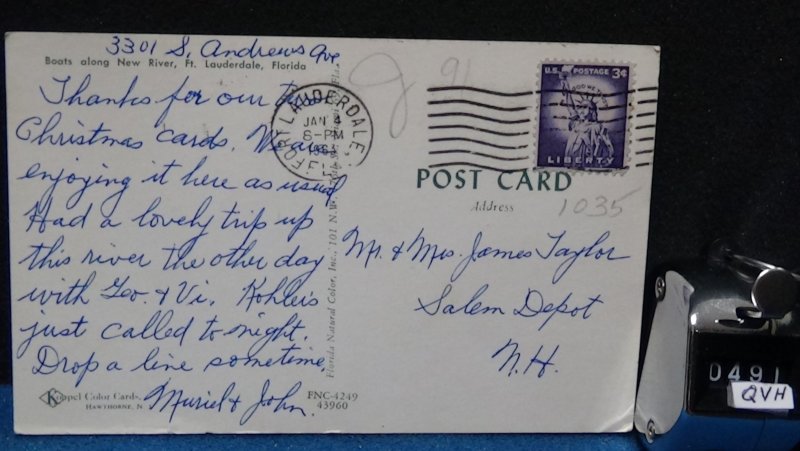 3301 S. Andrews Ave
Boats along New River, Ft. Lauderdale, Florida
Thanks for our
Christmas cards. We are
enjoying it here as usual
Had a lovely trip up
this river the other day
with Geo. & Vi. Kohlers
just called to night.
Drop a line sometime,
Muriel & John.
Koppel Color Cards
HAWTHORNE, N.
FNC-4249
43960
Florida Natural Color, Inc., 101 N.W.
FORT LAUDERDALE,
JAN 4
6-PM
FLA.
91
U.S. POSTAGE 3¢
IN GOD WE TRUST
LIBERTY
POST CARD
Address
1035
Mr. & Mrs. James Taylor
Salem Depot
N.H.
0491
QVH